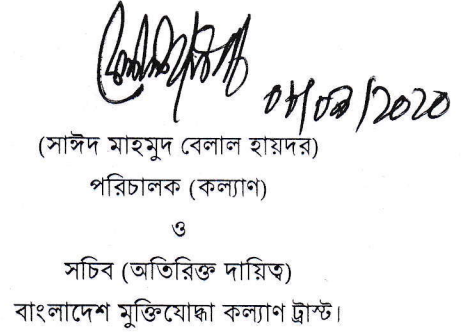 (সাঈদ মাহমুদ বেলাল হায়দর)
পরিচালক (কল্যাণ)
ও
সচিব (অতিরিক্ত দায়িত্ব)
বাংলাদেশ মুক্তিযোদ্ধা কল্যাণ ট্রাস্ট।